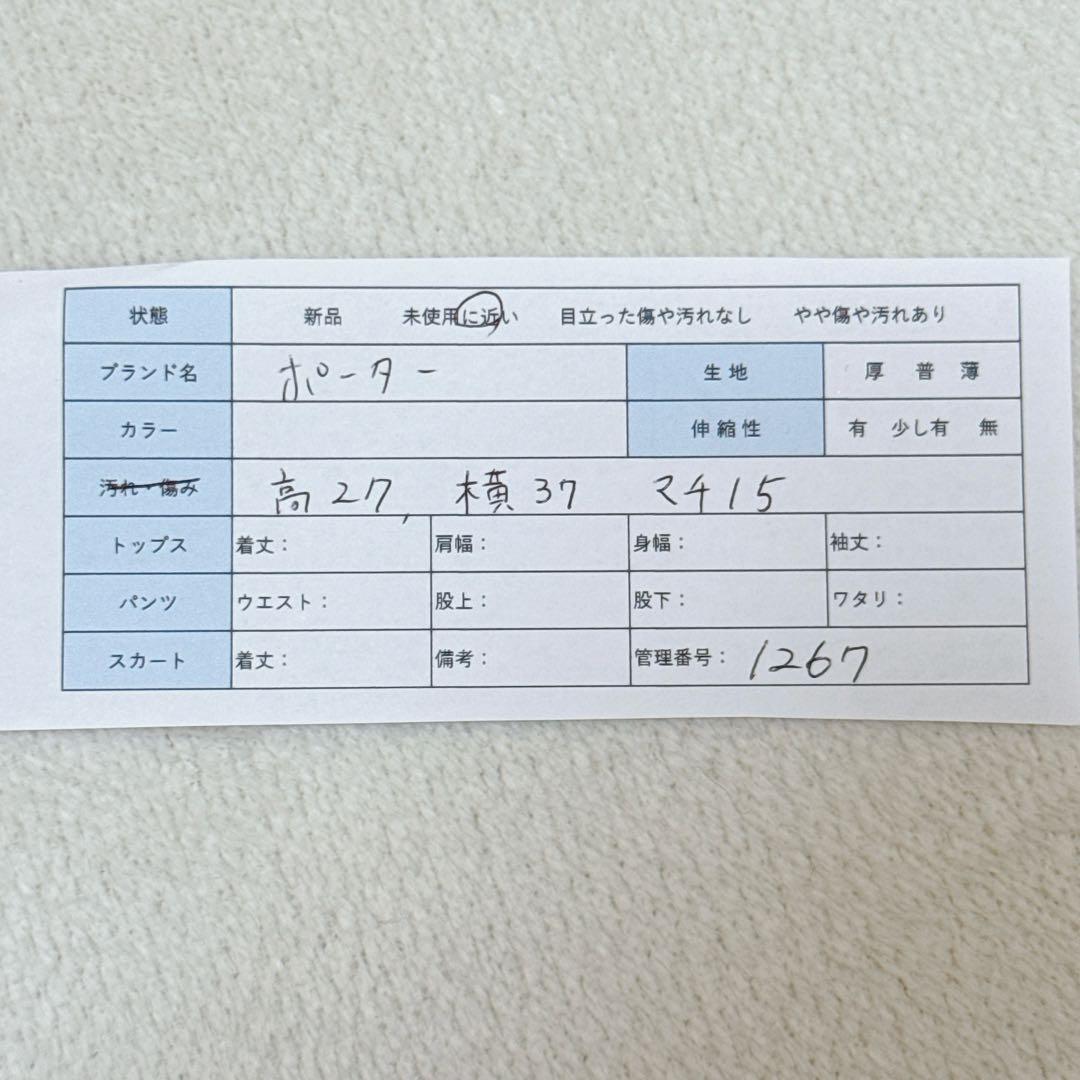 状態 新品 未使用に近い 目立った傷や汚れなし やや傷や汚れあり
ブランド名 ポーター 生地 厚 普 薄
カラー 伸縮性 有 少し有 無
汚れ・傷み 高27, 横37 マチ15
トップス 着丈： 肩幅： 身幅： 袖丈：
パンツ ウエスト： 股上： 股下： ワタリ：
スカート 着丈： 備考： 管理番号： 1267